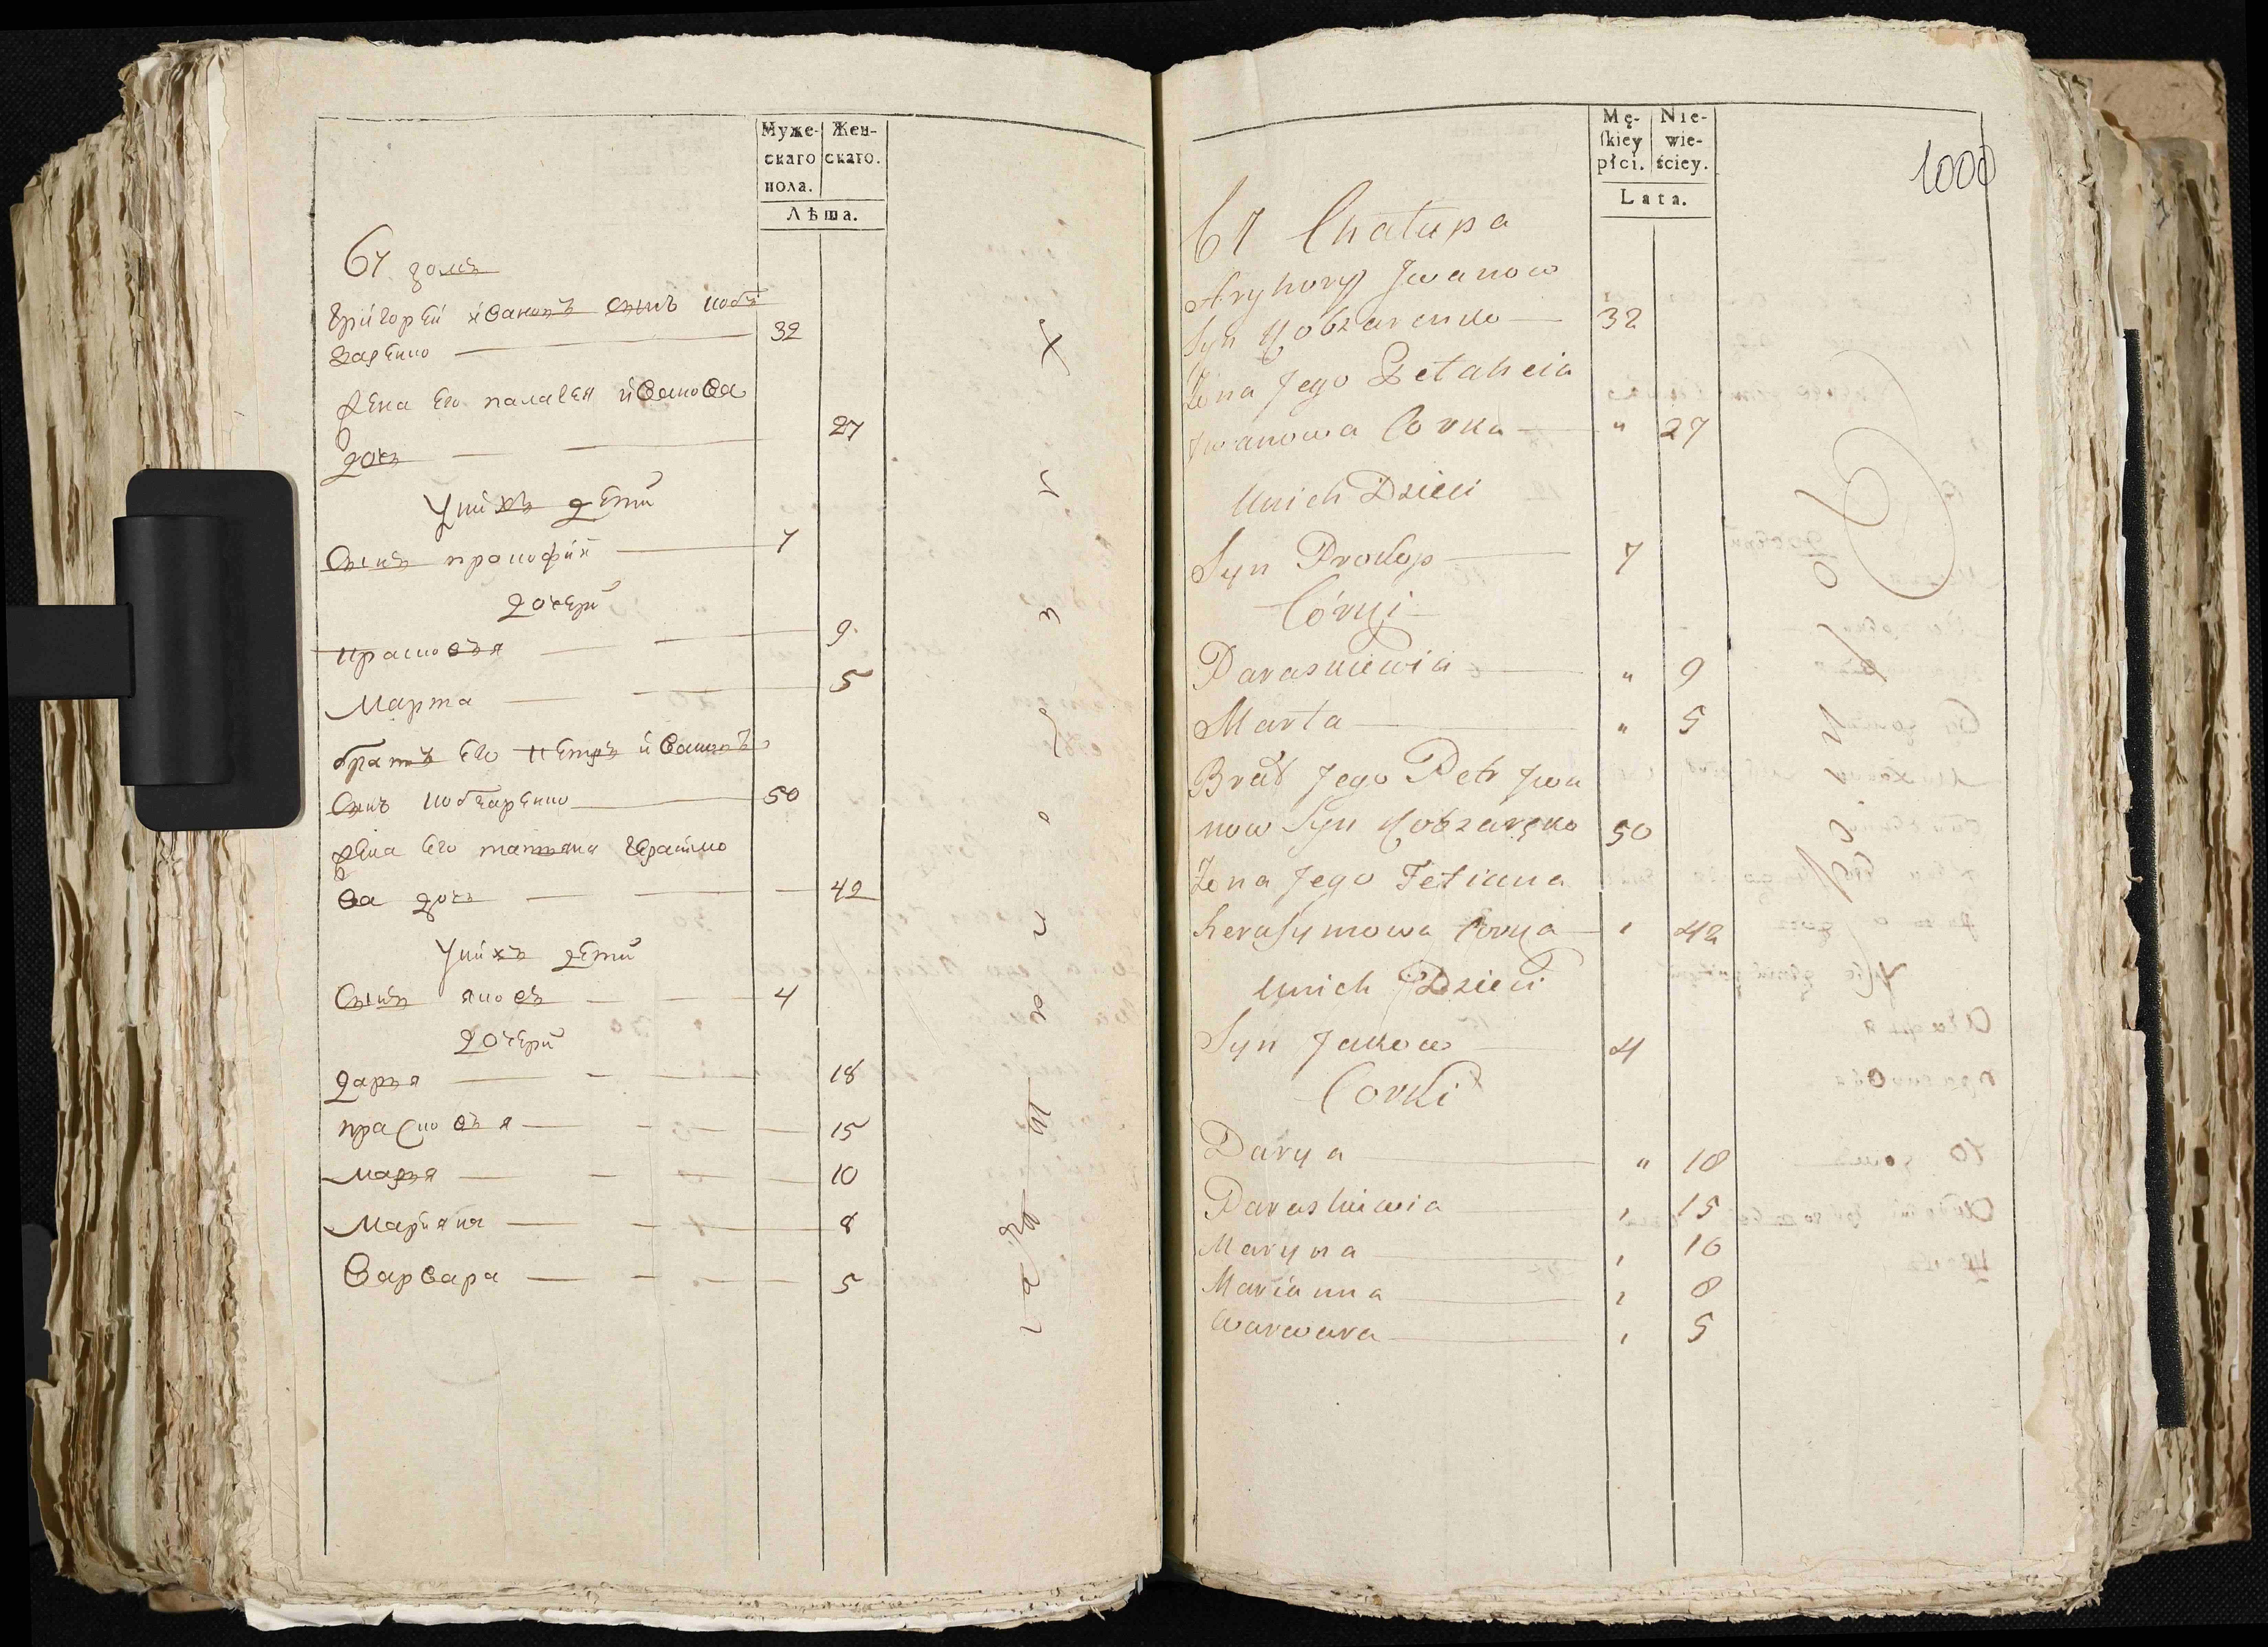 Муже- Жен-
скаго скаго.
пола.
Лѣта.
67 домъ
Григорей ивановъ сынъ коб
заренко 32
жена Его палагея иванова
дочь 27
У нихъ дети
Сынъ прокофий 7
дочери
прасковья 9
Марта 5
братъ Его петръ ивановъ
Сынъ кобзаренко 50
жена Его татьяна герасимо
ва дочь 42
У нихъ дети
Сынъ яковъ 4
дочери
дарья 18
прасковья 15
марья 10
Марияна 8
Варвара 5
Mę- Nie-
ſkiey wie-
płci. ściey.
Lata.
1000
67 Chatupa
Hryhory Jwanow
Syn Kobzarenko 32
Zena Jego Pelaheia
Jwanowa Corka " 27
Unich Dzieci
Syn Prokop 7
Córki
Paraskiewia " 9
Marta " 5
Brat Jego Petr Jwa
now Syn Kobzarenko 50
Zena Jego Tetiana
Herasymowa Corka 42
Unich Dzieci
Syn Jakow 4
Corki
Darya " 18
Paraskiewia 15
Maryna 10
Marianna 8
Warwara 5